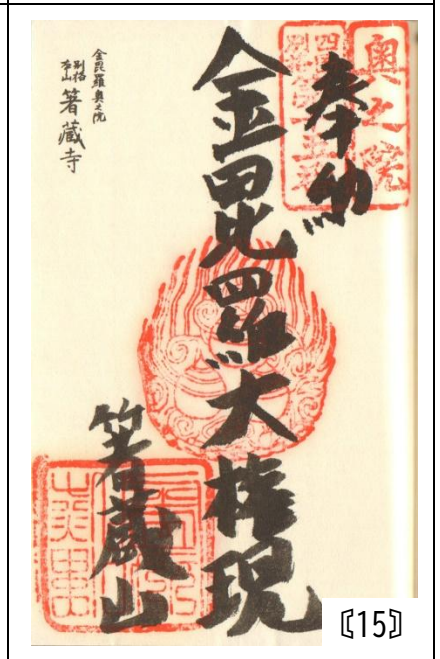 奥之院
奉納
金毘羅大権現
箸蔵山
金毘羅奥之院
別格
本山
箸蔵寺
〖15〗